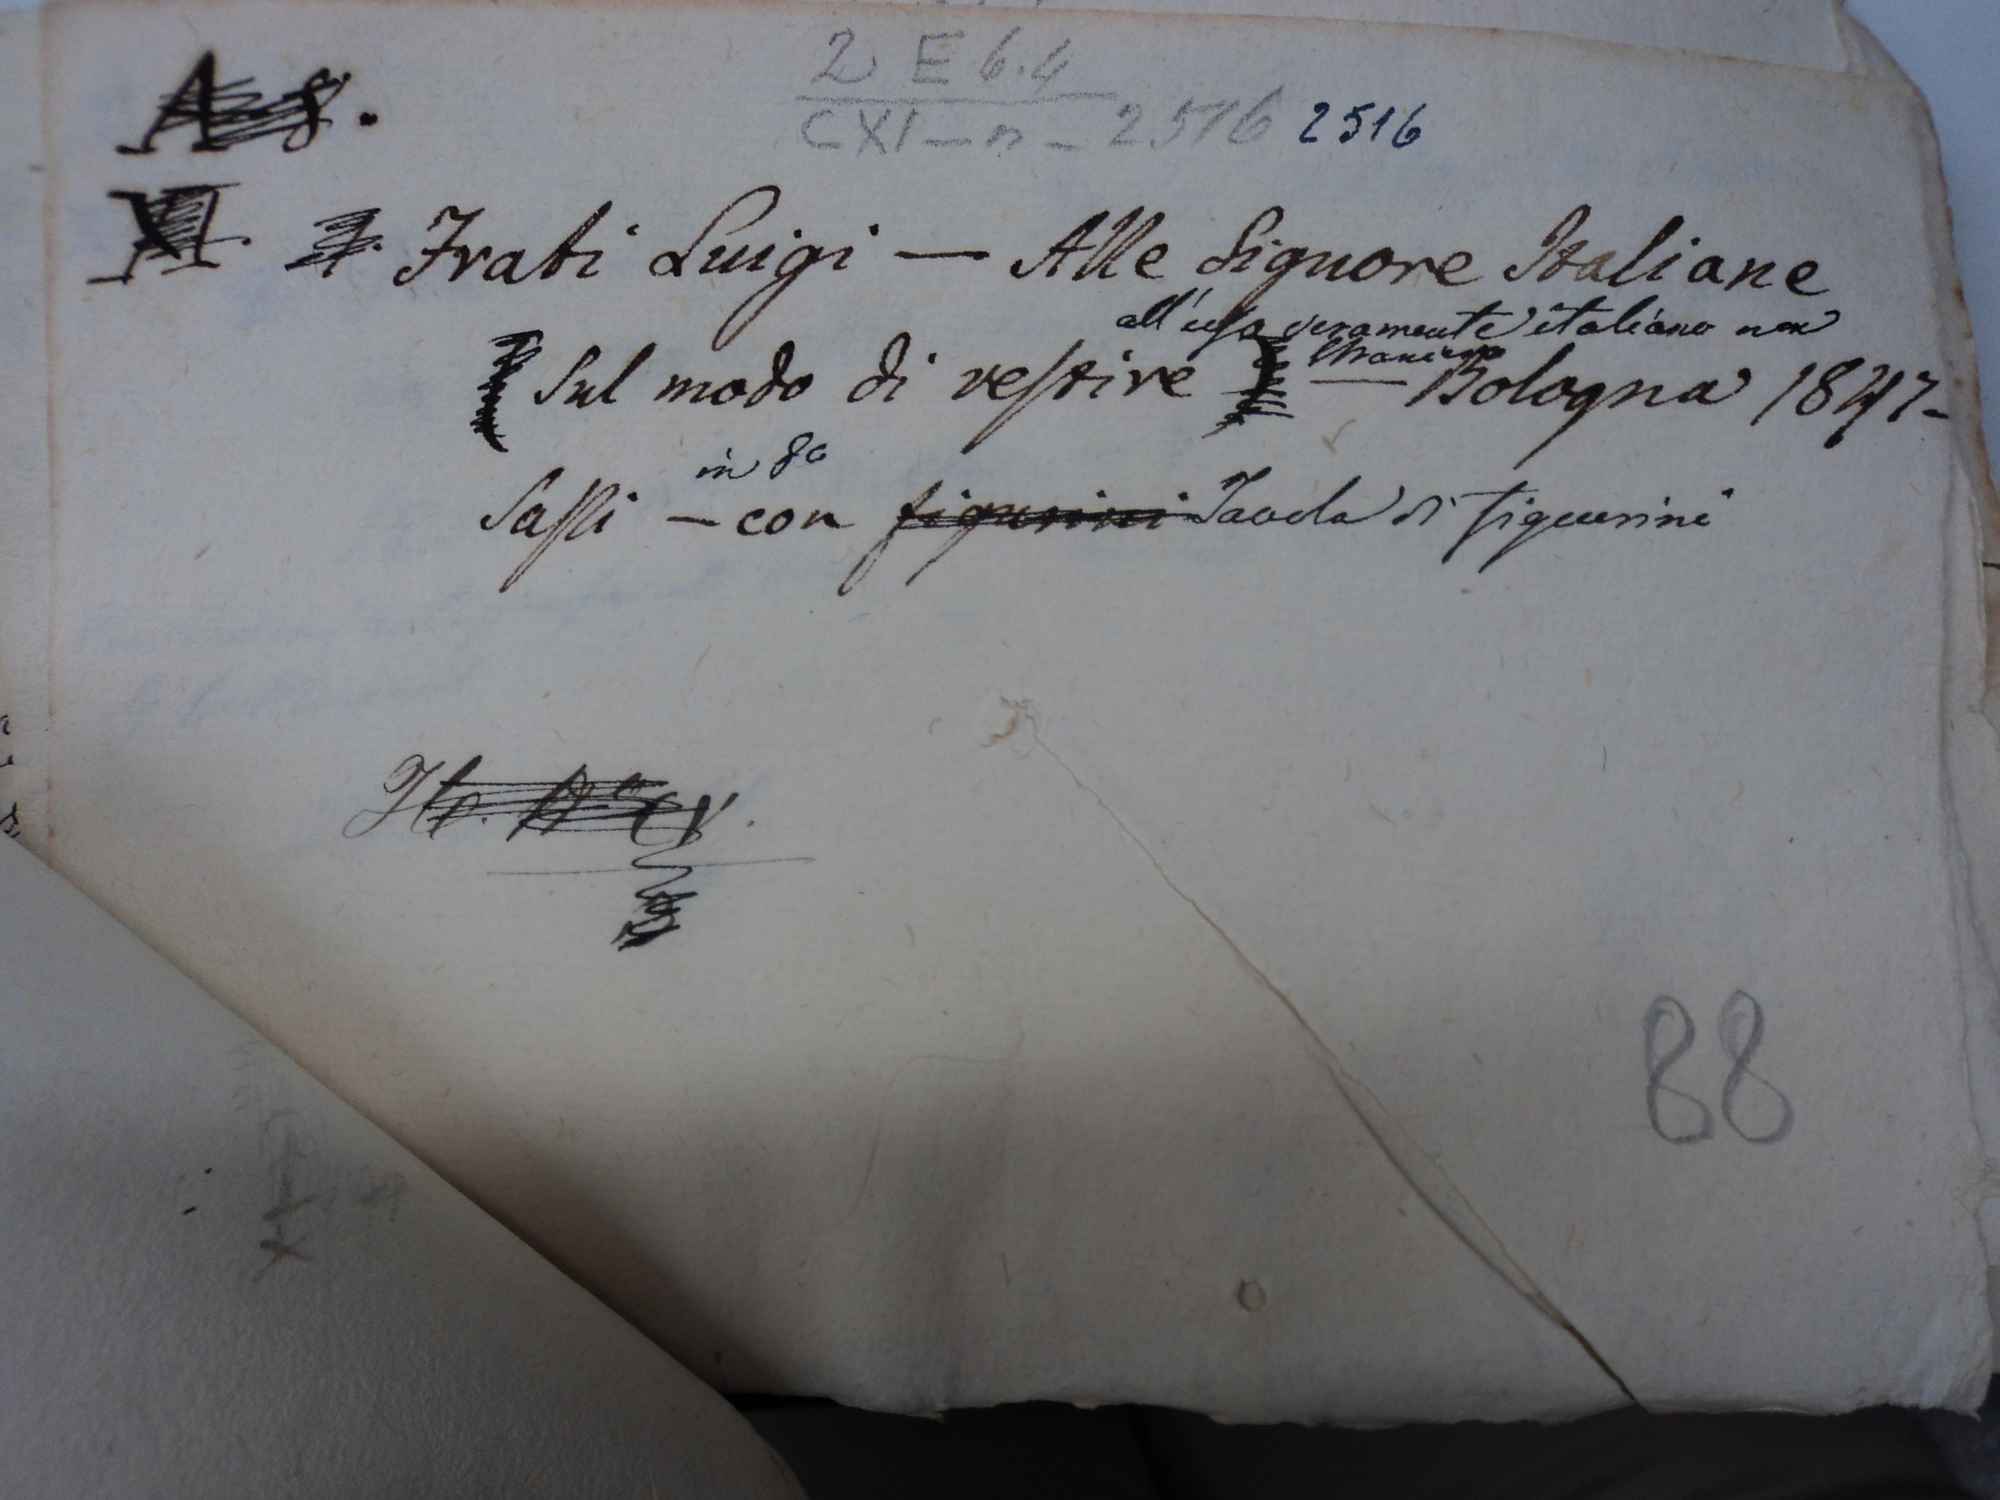 2 E 6.4
CXI - n - 2516 2516
Frati Luigi — Alle Signore Italiane
all'uso veramente italiano non
straniero
Sul modo di vestire — Bologna 1847-
in 8o
Sassi — con figurini Tavola di figurini
88